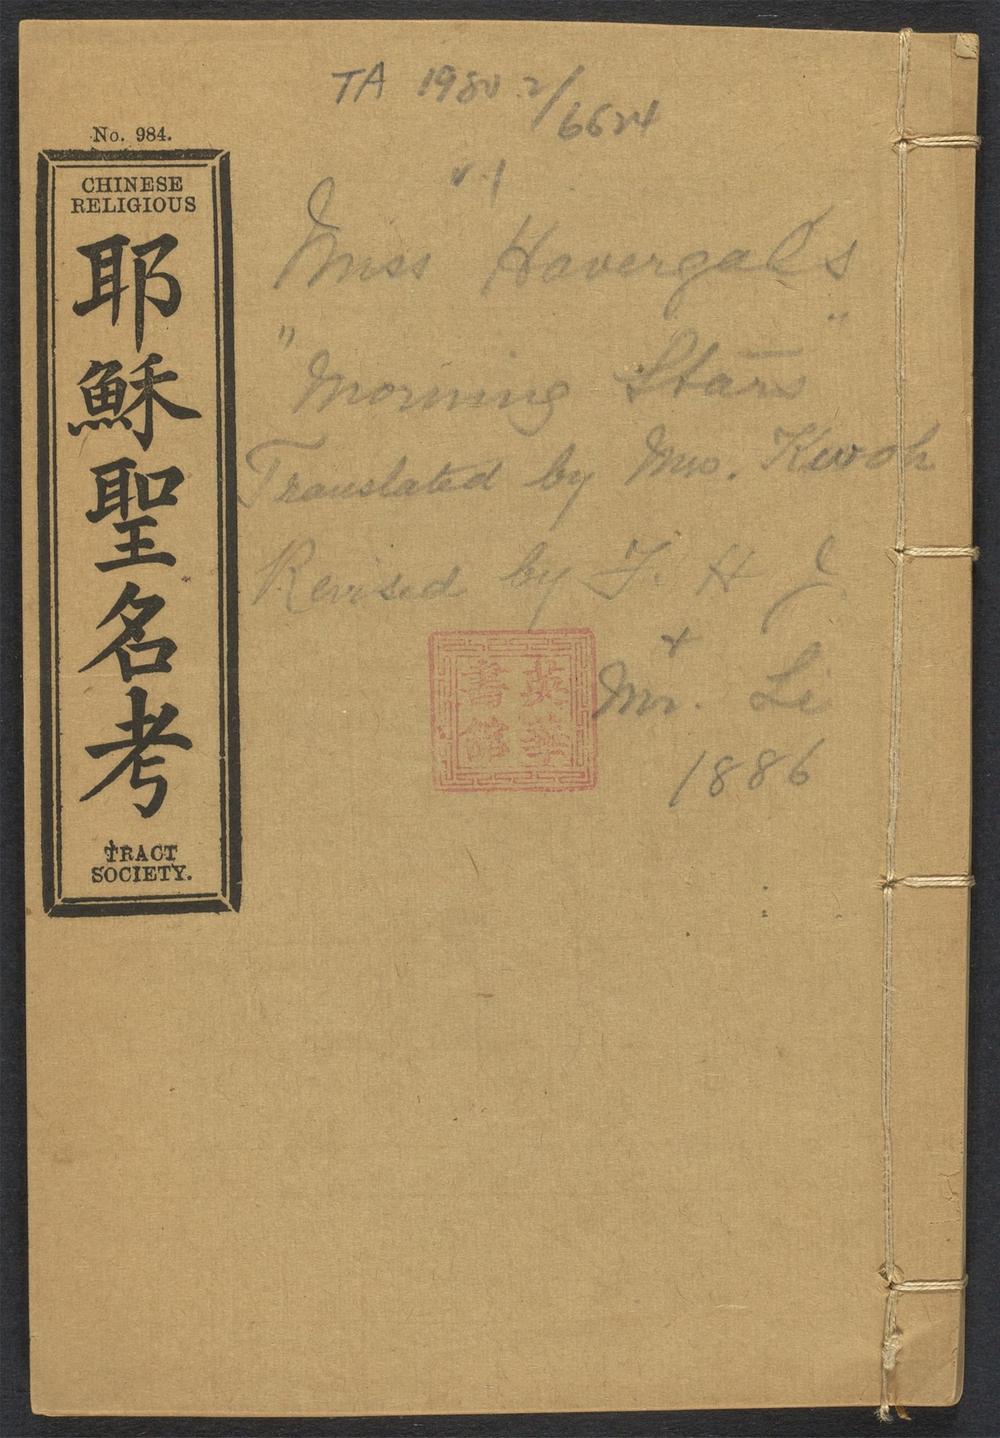 TA 1980.2/
6624
v.1
No. 984.
CHINESE
RELIGIOUS
耶穌聖名考
TRACT
SOCIETY.
Miss Havergal's
"Morning Stars"
Translated by Mrs. Kwoh
Revised by F. H. J
+
Mr. Li
1886
英華
書館